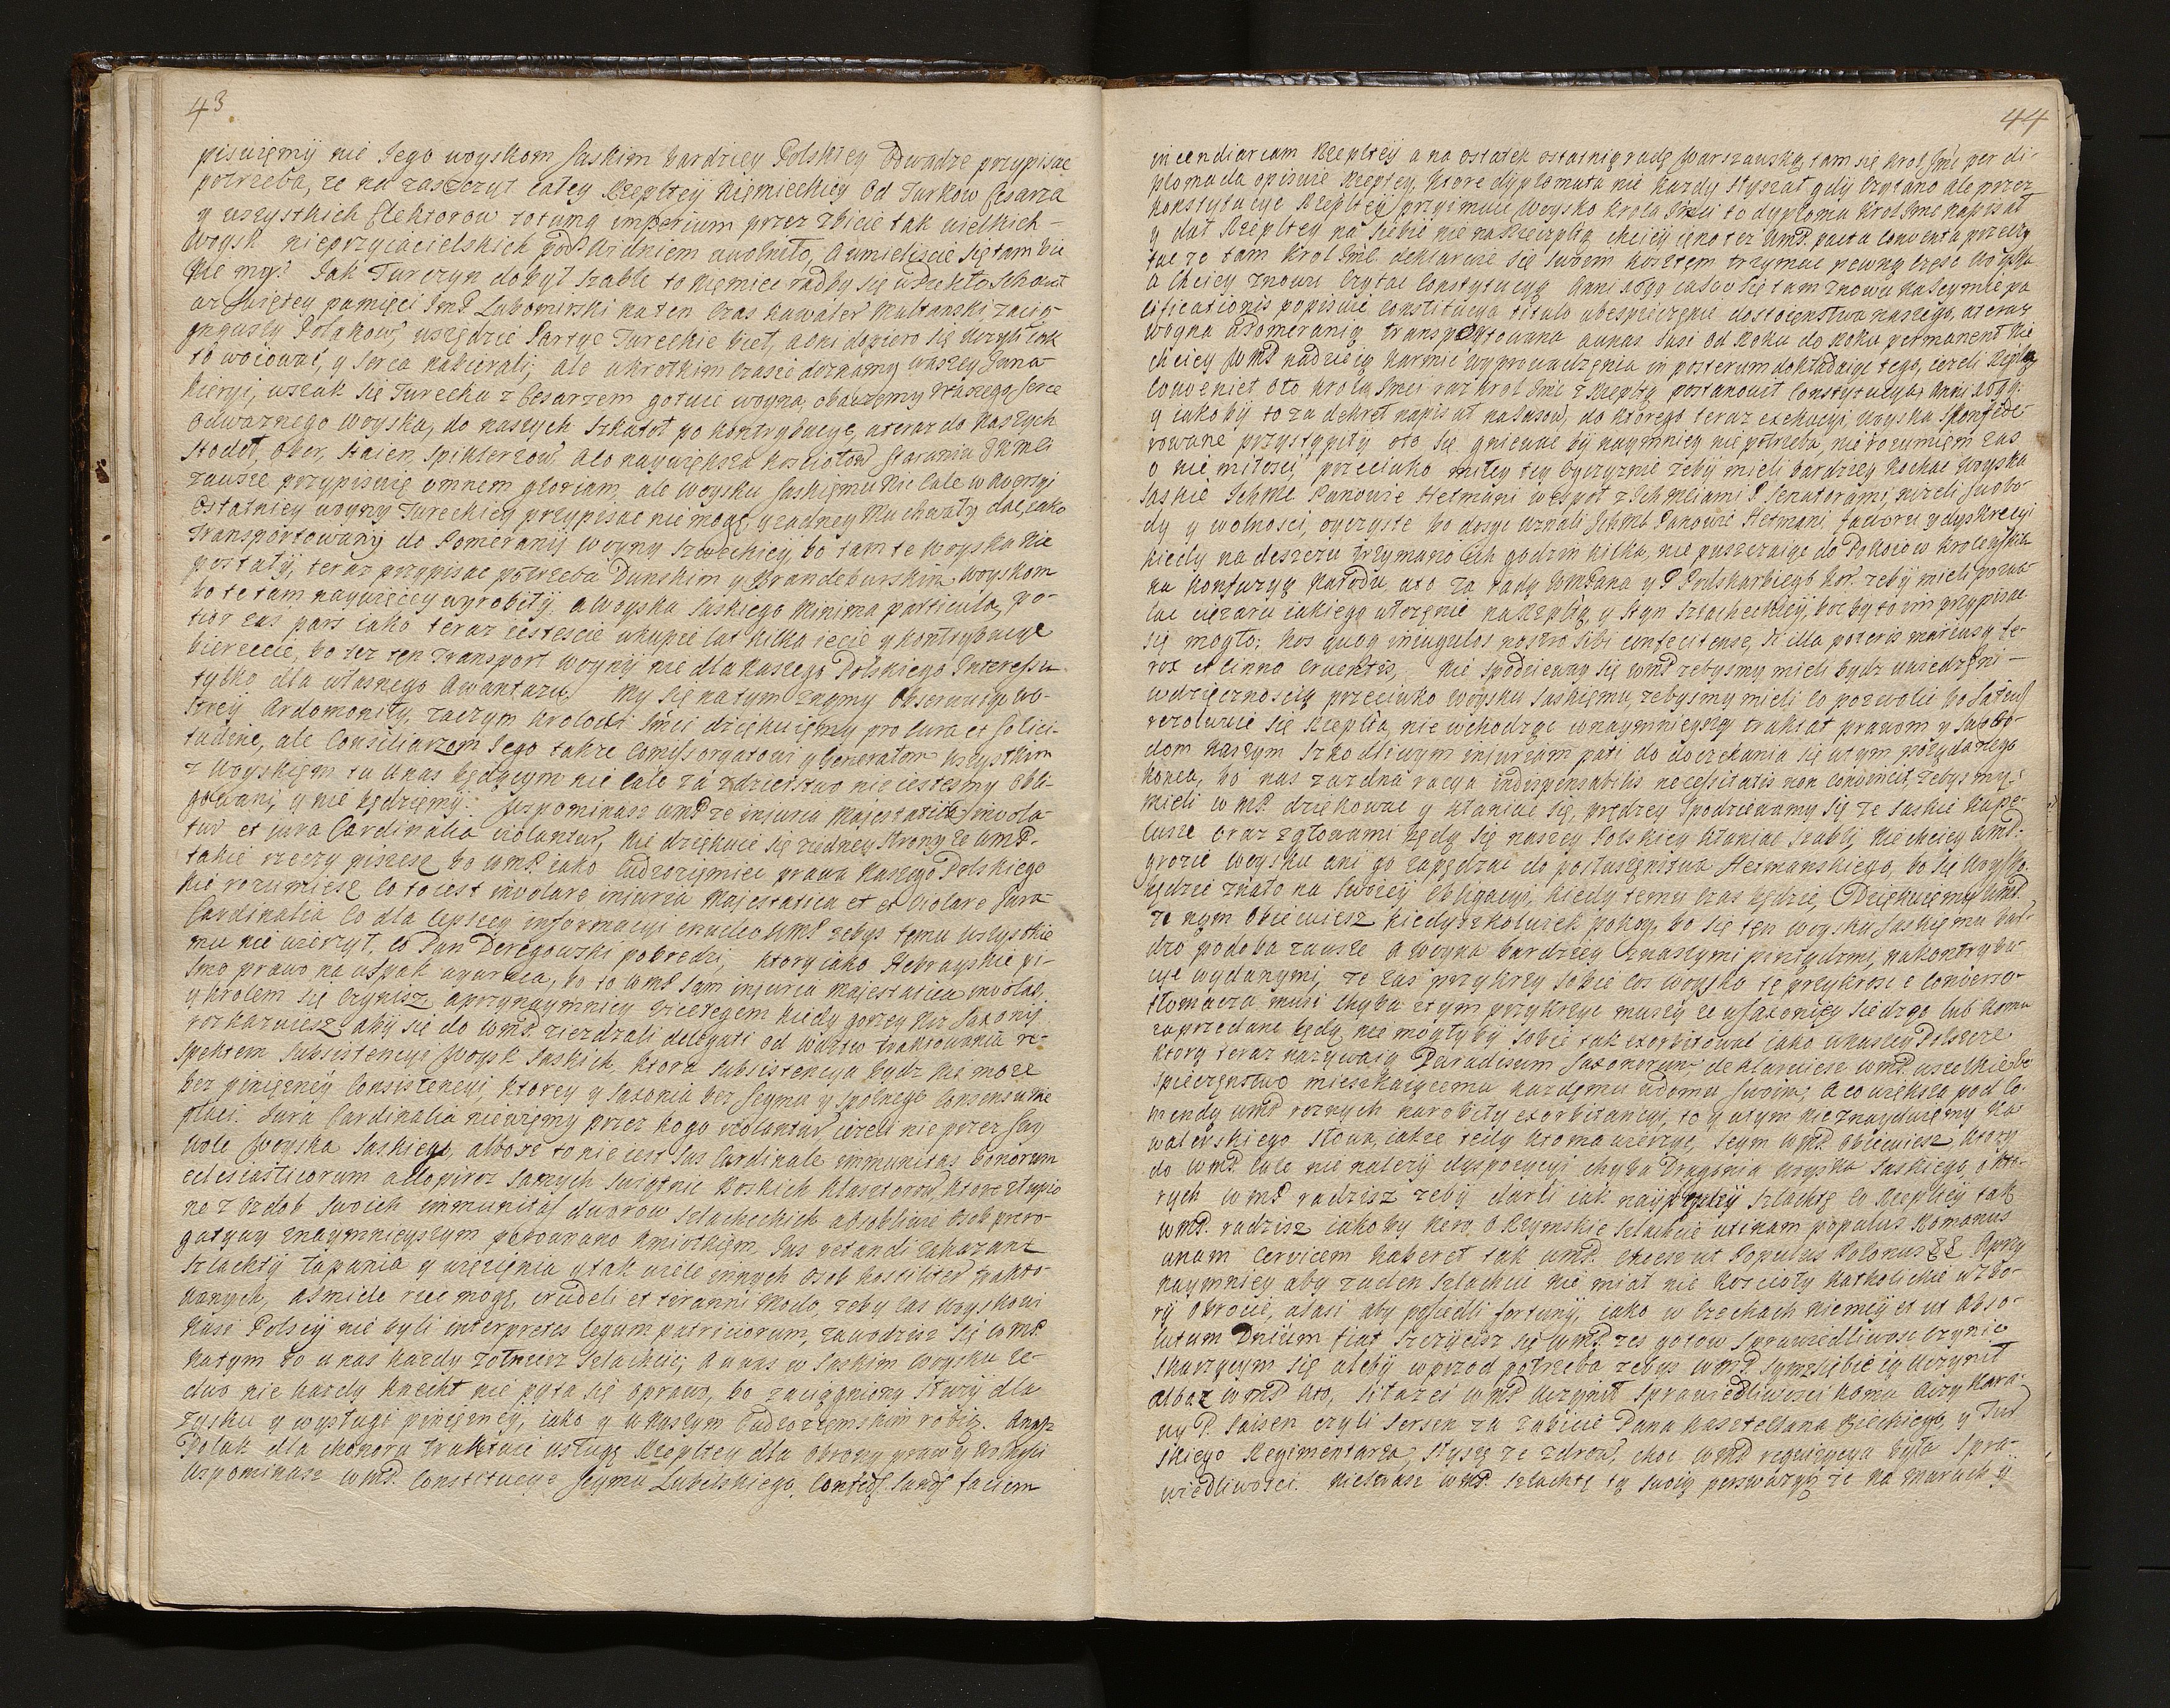 43
pisuięmÿ nie Jego woyskom Saskim bardziey Polskiey Odwadze przypisac
potrzeba, ze na zaszczyt całey Rzepltey Niemieckiey Od Turkow Cesarza
y wszystkich Elektorow totumą imperium przez zbicie tak wielkich
Woysk nieprzyiacielskich pod Widniem uwolniło, A umieliscie się tam bic
Nie my? Jak Turczyn dobył szable to Niemiec radby się w
az Swiętey pamięci ImP Lubomirski na ten Czas Kawaler Maltanski zacią
gnąwszy Polakow, wszędzie Partye Tureckie bieł, a oni dopiero się uczyli iak
to woiować, y serca nabierali; ale w krotkim czasie doznamy waszey Juna
kieryi, wszak się Turecka z Cesarzem gotuie woyna, obaczemy Waszego serce
odwaznego Woyska, do naszych Szkatuł po kontrybucye, a teraz do Naszych
Stodoł, Ober, Haien, Spiklerzow, Alo naywiększa kosciołow staraniu JKMci
zawsze przypisuię omnem gloriam, ale Woysku Saskięmu nie Cale w Awersyi
Ostatniey woyny Tureckiey przypisac nie mogę, y zadney Mu chwały dac, iako
Transportowany do Pomeranÿ woyny szwedzkiey, bo tam te Woyska nie
postały, teraz przypisac potrzeba Dunskim y Brandeburskim, Woyskom
bo te tam naywięcey wyrobiły, a Woyska Saskiego Minima particula, po-
tior zas pars iako teraz iestescie w kupie lat kilka iecie y kontrybucye
bierzecie, bo tez ten Transport woynÿ nie dla Naszego Polskiego Interessu
tylko dla własnego Awantazu. My się na tym znąmy Obserwuiąc wo-
strey Ardomonity, zaczym krolowi Jmci dziękuięmy pro cura et solici-
tudine, ale Consiliarzom Jego takze Comissorgatowi y Generałom wszystkim
z Woyskięm tu u nas będącym nie Cale za zdzierstwo nie iestesmy obli-
gowani, y nie będzięmÿ. Wspominasz WMP ze injuria Majestatica invola-
tur et jura Cardinalia violantur, nie dziękuie się zadney Strony ze WMP.
takie rzeczy piszesz bo WMP. iako Cudzoziemiec prawa Naszego Polskiego
Nie rozumiesz co to iest involare injuria Majestatica et violare Jura
Cardinalia co dla lepszey informacyi enucleo WMP zebys tęmu wszystkie
mu nie wierzył, co Pan Deręgowski pobredzi, ktory iako Hebrayskie pi-
smo prawo na uspak wywraca, bo to WMP sam injuria majestatica involas,
y krolem się Czynisz, a przynaymniey viceregem kiedy gorzey Niz Saxonÿ
rozkazuiesz, abÿ się do WMP. ziezdzali delegati od wdztw traktowania re-
spektem Subsistencyi Woysk Saskich, Ktora Subsistencya bydz nie moze
bez pieniężney Consistencyi, Ktorey y Saxonia bez Seymu y Spolnego Consensu nie
płaci. Jura Cardinalia niewięmy przez kogo violantur, iezeli nie przez Swy
wole Woyska Saskiego, alboz to nie iest Jus Cardinale immunitas bonorum
eclesiasticorum a dopiroz samych swiątnic Boskich klasztorow, ktore złupio
ne z ozdob swoich immunitas dworow szlacheckich absoblicie Osob prero-
gatywy znaymnieyszym porownano kmiotkięm, Jus vetandi zakazane
szlachtÿ łapania y więzięnia y tak wiele innych osob hostiliter trakto-
wanych, a smiele rzec mogę, crudeli et tiranni modo, zeby Cas Woyskowi
Nasi Polscÿ nie byli interpretes legum patriciorum, zawodzisz się WMP.
Na tym bo u nas kazdy Zołnierz Szlachcic; A u was w Saskim Woysku le-
dwo nie kazdy Knecht nie pyta się oprawo, bo zaciągniony Słuzÿ dla
zysku y wysługi pinięzney, iako y w Naszym Cudzoziemskim robią. Nasz
Polak dla chonoru traktuie usługę Rzepltey dla obrony praw y wolności
Wspominasz WMP. Constitucye Seymu Lubelskiego, Confed: Sand: faciem
44
incendiariam Rzepltey a na ostatek ostatnią radę Warszawską, tam się Krol Jmc per di-
ploma da opisuie Rzepltey, Ktore dyplomata nie kazdy słyszał gdÿ Czytano ale przez
konstytucye Rzepltey przyimuie Woysko Krola Jmci to dyploma Krol Jmc napisał
y dał Rzepltey na siebie nie na Rzeczplta, chciey ieno tez WMP. pacta Conventa przeczy
tac ze tam Krol Jmc deklaruie się swoim kosztęm trzymac pewną Częsc Woyska
A Chciey znowu Czytac Constytucyą Anni 1699 iasno się tam znowu na Seymie pa
cificationis popisuie constitucya titulo ubespieczęnie dostoięnstwa naszego, a teraz
woyna w Pomeranią transportowana a u nas Sasi Od Roku do Roku permanent Nie
chciey WMP nadzieią karmic wyprowadzęnia in posterum dokładaiąc tego, iezeli Rzeplta
Conveniet oto Krola Jmci raz Krol Jmc z Rzepltą postanowił Constytucyą Anni 1699.
y iakobÿ to za dekret napisał na Sasow, do Ktorego teraz exekucyi Woyska Skonfede-
rowane przystąpiły oto się gniewac by naymniey nie potrzeba, nie rozumięm zas
o nie miłosci, przeciwko miłey tey Oyczyznie zebÿ mieli bardziey Kochac Woyska
Saskie Ichmc Panowie Hetmani wespoł z Ichmciami P Senatorami, nizeli swobo-
dy y wolnosci, oyczyste bo dosyc uznali Ichmc Panowie Hetmani faworu y dyskrecyi
kiedy na deszczu trzymano ich godzin kilka, nie puszczaiąc do Pokoiow Krolewskich
na konfuzyą Narodu, a to za radą WmPana y P Podskarbiego Kor. zebÿ mieli pozwa
lac cięzaru iakiego włozęnie na Rzepltą, y styn Szlacheckieÿ, boc by to im przypisac
się mogło. Hos quoq singulos nostro sibi confecit ense, Et illa poteris mater asq fe-
rox et Cinna cruentus, Nie spodziewaÿ się WMP zebysmy mieli bydz uwiedzęni
wdzięcznoscią przeciwko Woysku Saskięmu, zebysmy mieli Co pozwolic bo Satius
rezolwuie się Rzeplta, nie wchodząc w naymnieyszy traktat prawom y swobo-
dom Naszym szkodliwym injuriam pati do doczekania się w tym pozadanego
konca, bo nas zazdna racya indispensabilis necessitatis non convincit, zebysmy
mieli WMP. dziękowac y kłaniac się, prędzey spodziewamy się ze Saskie kape-
lusze oraz z głowami będą się naszey Polskiey kłaniac szabli, Nie chciey WMP.
grozic Woysku ani go zapędzac do posłuszęnstwa Hetmanskiego, bo się Woysko
będzie znało na swoieÿ obligacyi, kiedy temu Czas będzie, Dziękuięmy WMP.
ze nąm Obiecuiesz kiedyszkolwiek pokoy, bo się ten Woysku Saskięmu bar-
dzo podoba zawsze a woyna bardziey z naszymi pieniądzmi, na kontrybu
cye wydanymi, ze zas przykrzy sobie Cos Woysko tę przykrosc e converso
tłomacza musi chyba w tym przykrzyc muszą ze w Saxoniey siedząc lub komu
zaprzedane będą nie mogły by sobie tak exorbitowac iako w naszey Polszcze
ktorą teraz nazywaią Paradisum Saxonorum deklaruiesz WMP. wszelkie be
spieczęnstwo mieszkaiącemu kazdęmu w domu swoim; a co większa pod Co-
mendą WMP roznych narobiły exorbitancyi, to y w tym nie znayduięmy Ka
walerskiego słowa, iakze tedy Kto ma wierzyc, Seym WMP. obiecuiesz, ktory
do WMP. Cale nie nalezÿ dyspozycyi chyba Dragonia Woyska Saskiego, o kto-
rych WMP radzisz zebÿ darli iak nayprędzey szlachtę Co Rzepltey tak
WMP. radzisz iakoby Nero O Rzymskie szlachcie utinam populus Romanus
unam Cervicem haberet tak WMP. chcesz ut Populus Polonus &c Aprzy
naymniey aby zaden szlachcic nie miał nic Koscioły Katholickie w Zbo-
rÿ obrocic, a Sasi aby posiedli fortuny, iako w Czechach Niemcy et ut abso-
lutum Dnium fiat szczycisz się WMP. zes gotow sprawiedliwosc Czynic
skarzącym się alebÿ wprzod potrzeba zebys WMP. sąm z siebie ią uczynił
Albaz WMP kto, sitazei WMP uczynił sprawiedliwosci komu Aczy Kara-
ny P. Saisen czyli Sersen za zabicie Pana kasztellana Bieckiego, y Tur
skiego Regimentarza, słyszę ze zdrow, choc WMP requizycya była spra-
wiedliwości. Niestrasz WMP. szlachtę tą swoią perswazyą ze na marach ÿ